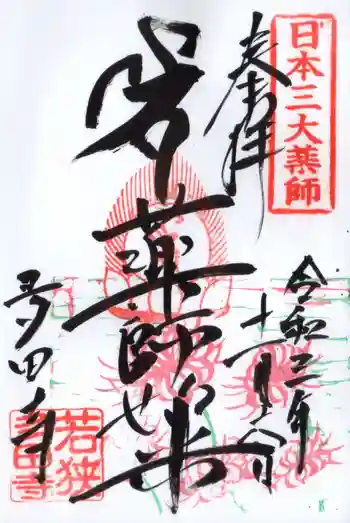 日本三大薬師
奉拝
令和三年
十一月六日
薬師如来
多田寺
若狭
多田寺